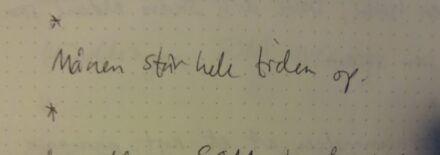 *
Månen står hele tiden op.
*